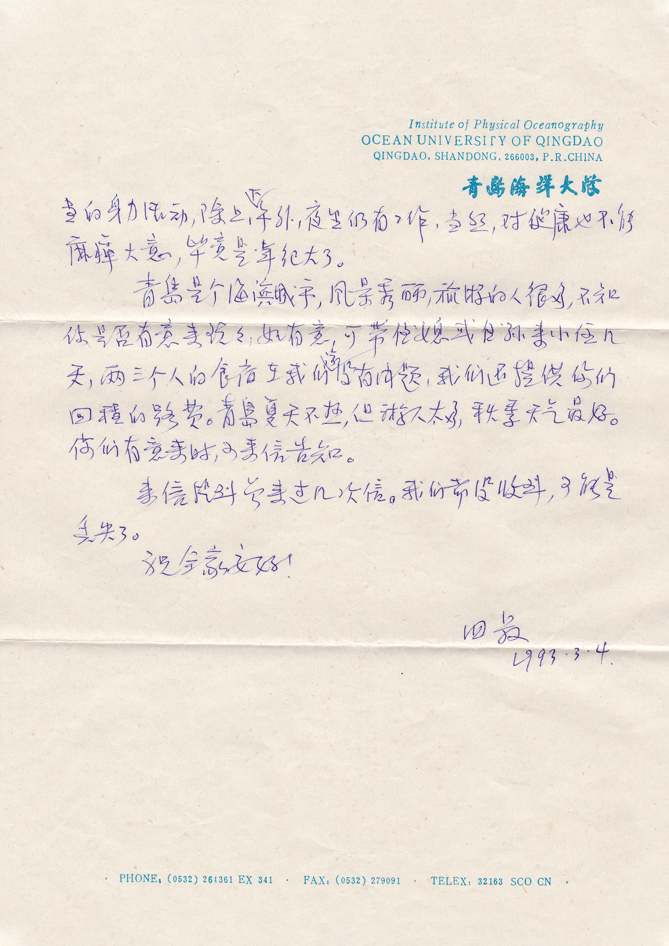 Institute of Physical Oceanography
OCEAN UNIVERSITY OF QINGDAO
QINGDAO, SHANDONG, 266003, P.R.CHINA
青岛海洋大学
当的身力活动,除上下午外,夜里仍有工作,当然,对健康也不能
麻痺大意,毕竟是年纪大了。
青岛是个海滨城市,风景秀丽,旅游的人很多,不知
你是否有意来玩玩,如有意,可带住媳或日孙来小住几
天,两三个人的食宿在我们这没有问题,我们还提供你们
回程的路费。青岛夏天不热,但游人太多,秋季天气最好。
你们有意来时,可来信告知。
来信说到曾来过几次信。我们都没收到,可能是
丢失了。
祝全家安好!
四叔
1993.3.4.
· PHONE: (0532) 264361 EX 341 · FAX: (0532) 279091 · TELEX: 32163 SCO CN ·